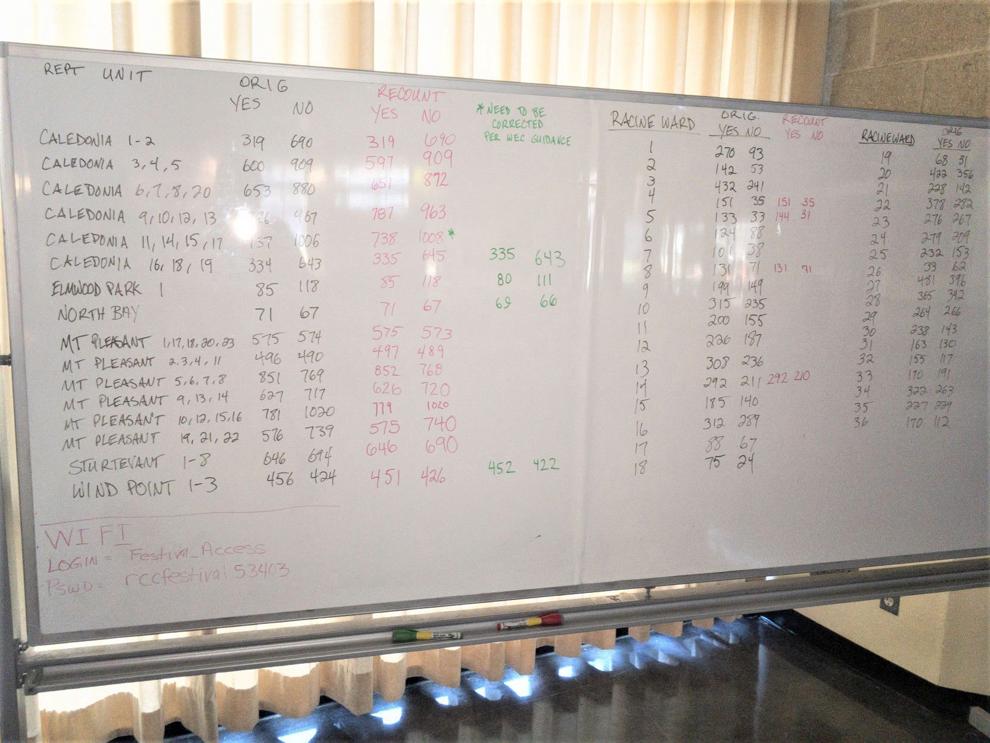 REPT UNIT ORIG RECOUNT
YES NO YES NO
*NEED TO BE
CORRECTED
PER WEC GUIDANCE
CALEDONIA 1-2 319 690 319 690
CALEDONIA 3,4,5 600 909 597 909
CALEDONIA 6,7,8,20 653 880 651 872
CALEDONIA 9,10,12,13 967 787 963
CALEDONIA 11,14,15,17 737 1006 738 1008*
CALEDONIA 16,18,19 334 643 335 645 335 643
ELMWOOD PARK 1 85 118 85 118 80 111
NORTH BAY 71 67 71 67 69 66
MT PLEASANT 1,17,18,20,23 575 574 575 573
MT PLEASANT 2,3,4,11 496 490 497 489
MT PLEASANT 5,6,7,8 851 769 852 768
MT PLEASANT 9,13,14 627 717 626 720
MT PLEASANT 10,12,15,16 781 1020 779 1020
MT PLEASANT 19,21,22 576 739 575 740
STURTEVANT 1-8 646 694 646 690
WIND POINT 1-3 456 424 451 426 452 422
WIFI
LOGIN = Festival_Access
PSWD = rccfestival53403
RACINE WARD ORIG. RECOUNT
YES NO YES NO
1 270 93
2 142 53
3 432 241
4 151 35 151 35
5 133 33 144 31
6 124 88
7 38
8 131 71 131 71
9 199 149
10 315 235
11 200 155
12 226 187
13 308 236
14 292 211 292 210
15 185 140
16 312 289
17 88 67
18 75 24
RACINE WARD ORIG
YES NO
19 68 31
20 422 356
21 228 142
22 378 282
23 276 267
24 279 209
25 232 153
26 33 62
27 451 396
28 365 342
29 264 266
30 238 143
31 163 130
32 155 117
33 170 191
34 322 263
35 227 229
36 170 112